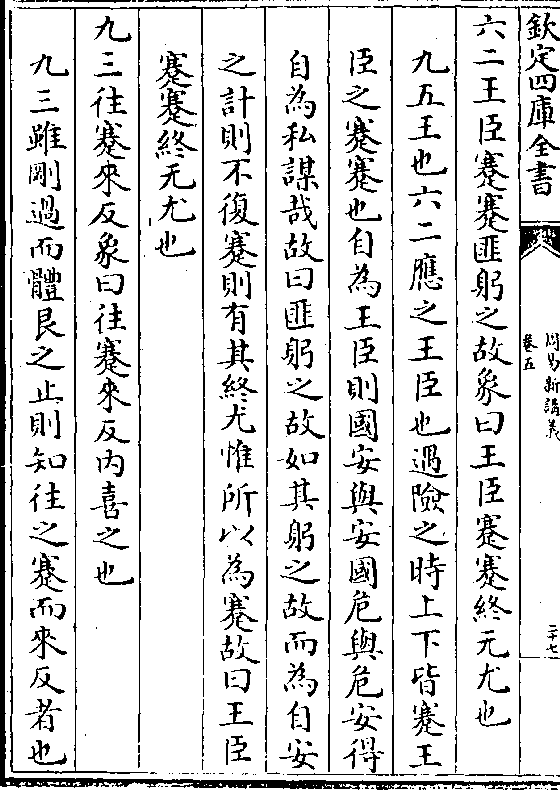 欽定四庫全書
周易新講義
卷五
二十七
六二王臣蹇蹇匪躬之故象曰王臣蹇蹇終无尤也
九五王也六二應之王臣也遇險之時上下皆蹇王
臣之蹇蹇也自為王臣則國安與安國危與危安得
自為私謀哉故曰匪躬之故如其躬之故而為自安
之計則不復蹇則有其終尤惟所以為蹇故曰王臣
蹇蹇終无尤也
九三往蹇來反象曰往蹇來反内喜之也
九三雖剛過而體艮之止則知往之蹇而來反者也